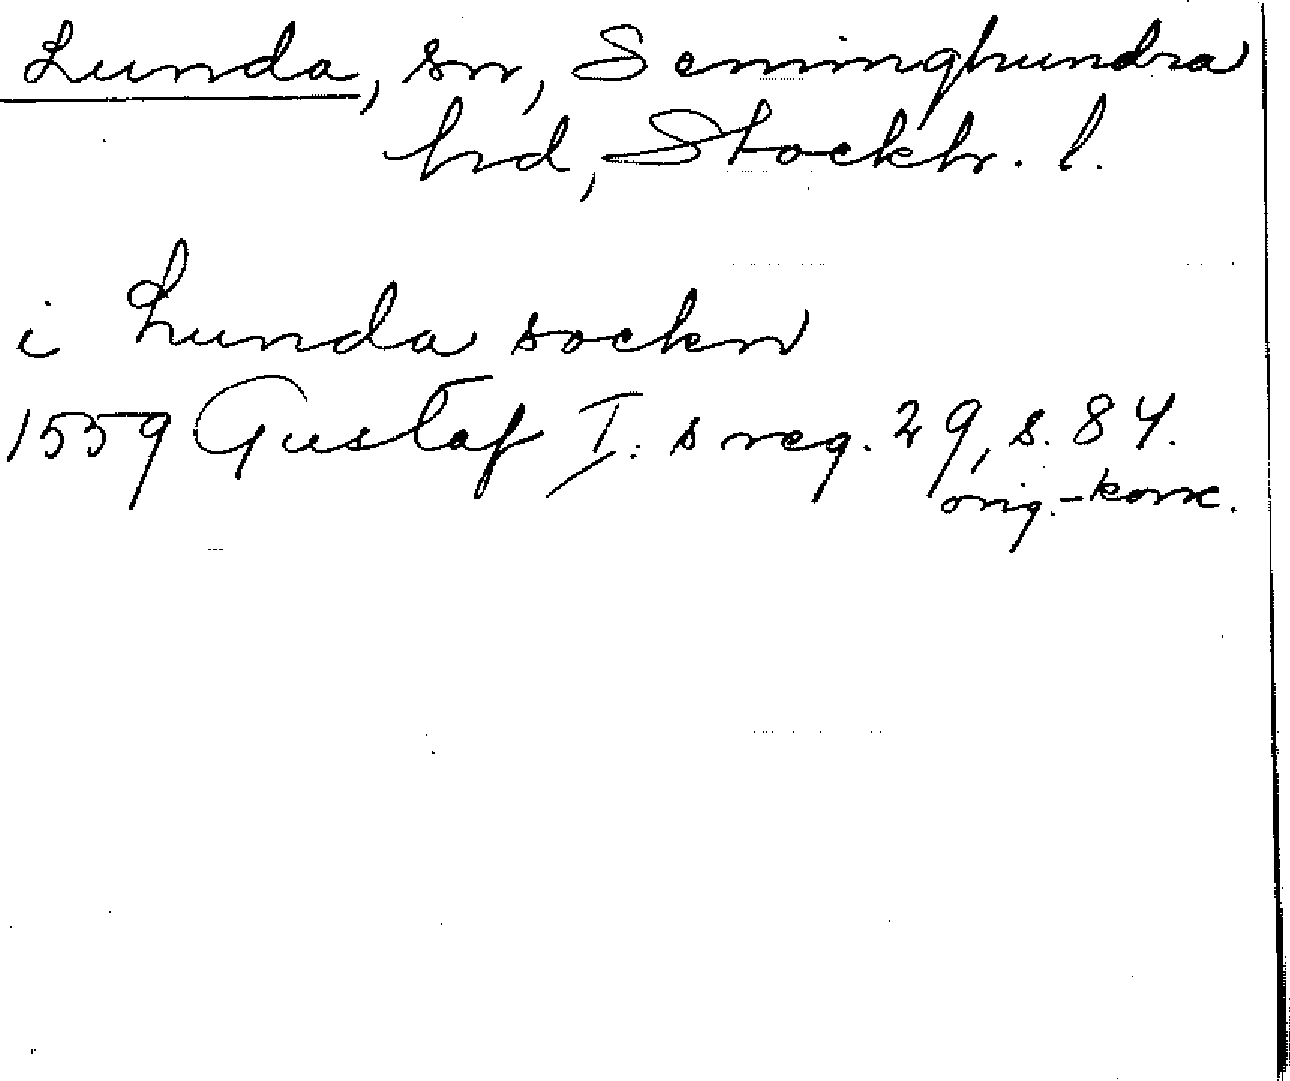 Lunda, sn, Seminghundra
hd, Stockh. l.
i Lunda sockn
1559 Gustaf I:s reg. 29, s. 84.
orig.-konc.